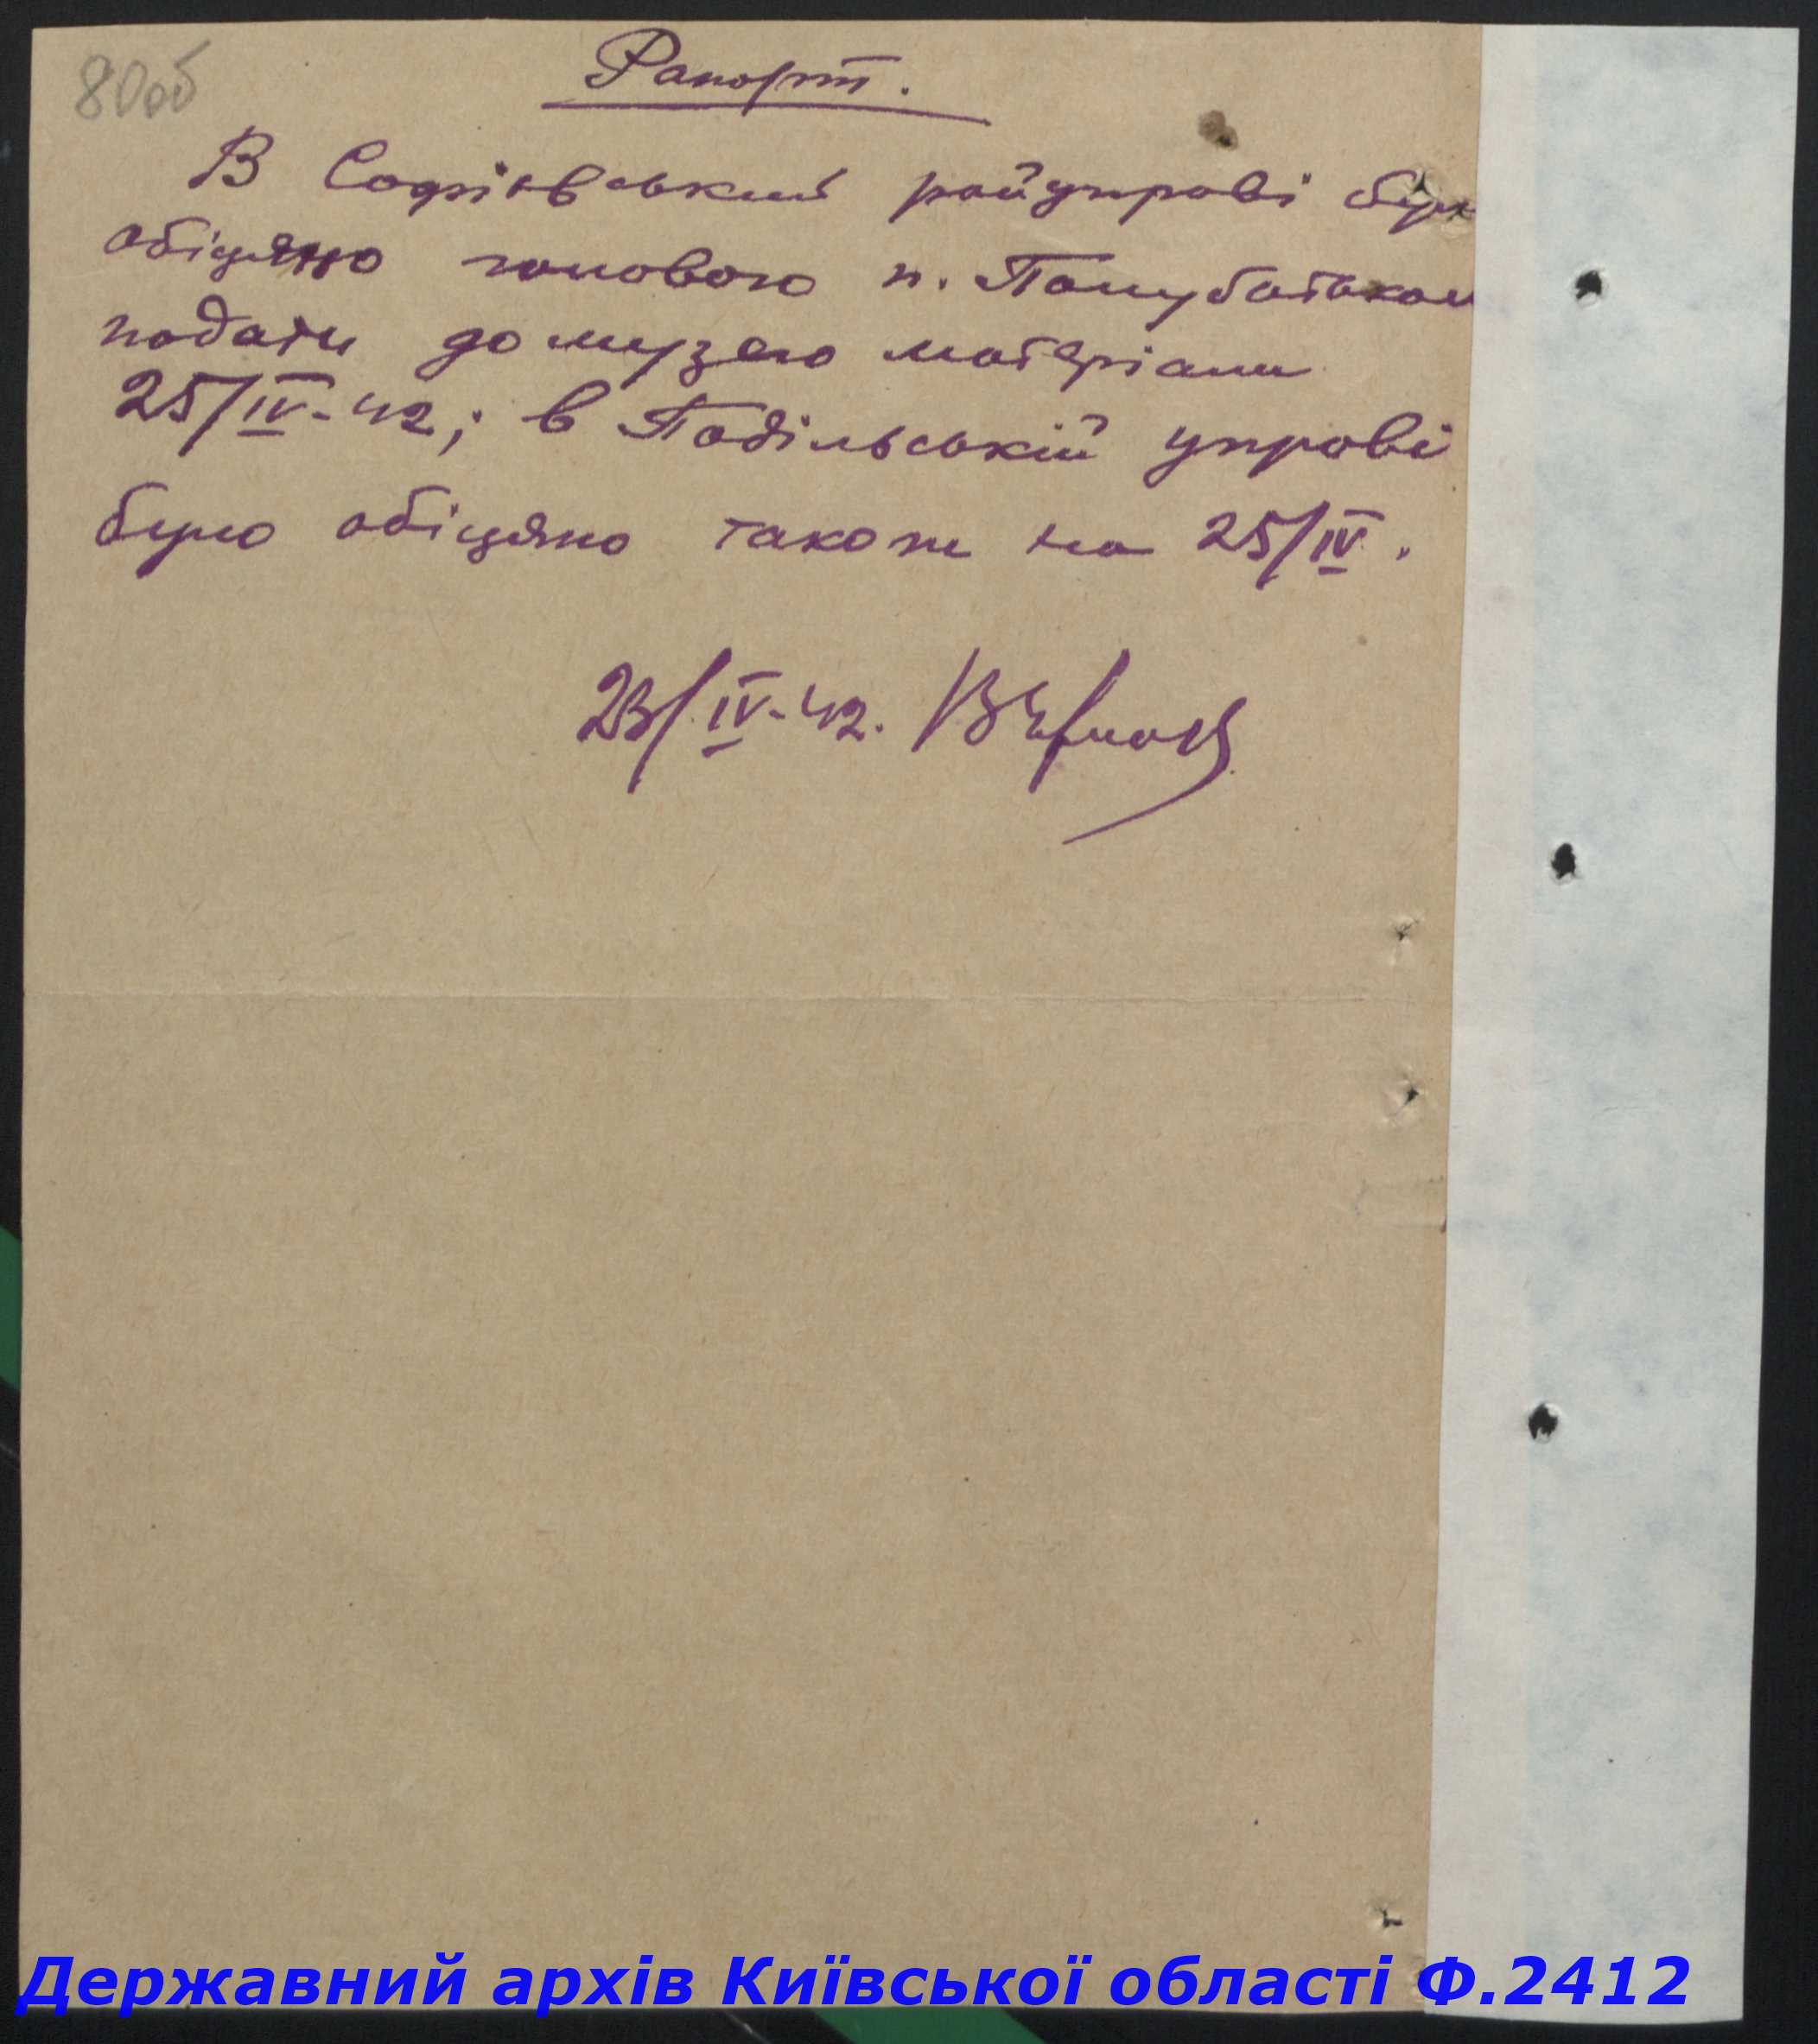 80об
Рапорт.
В Софіівський райуправі
обіцяно головою п.
подати до музею матеріали
25/IV-42; в Подільській управі
було обіцяно також на 25/IV.
23/IV-42.
Державний архів Київської області Ф.2412